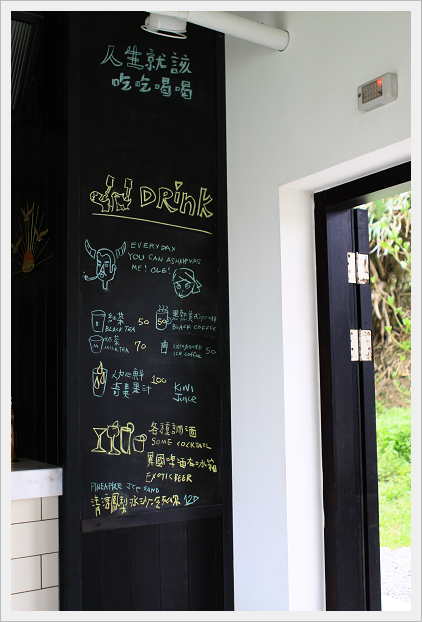 人生就該
吃吃喝喝
DRink
EVERYDAY
YOU CAN AS HAPPY AS
ME! OLE!
紅茶 50
BLACK TEA
黑咖啡
BLACK COFFEE
奶茶 70
MILK TEA
ICE COFFEE 50
鮮
奇異果汁 100
KiWi
JuiCE
各種調酒
SOME COCKTAIL
異國啤酒在冰箱
EXOTIC BEER
PINEAPPLE ICE SAND
清涼鳳梨冰沙 120